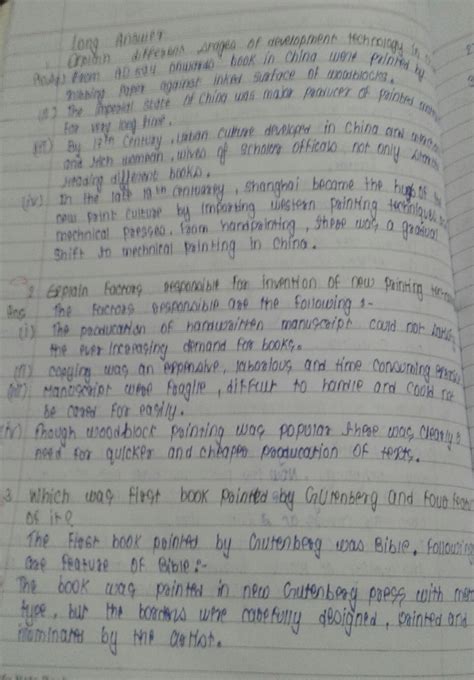 Long Answer
Explain different stages of development technology in
Ans(i) From AD 594 onwards book in China were printed by
rubbing paper against inked surface of woodblocks.
(ii) The imperial state of China was major producer of printed
for very long time.
(iii) By 17th century, urban culture developed in China and
and rich woman, wives of scholar officals not only
reading different books.
(iv) In the late 19th centuary, Shanghai became the hub of the
new print culture by importing western printing techniques
mechnical presses. From handprinting, there was a gradual
shift to mechnical printing in China.
2 Explain Factors responsible for invention of new printing
Ans The Factors responsible are the following :-
(i) The producation of handwritten manuscript could not
the ever increasing demand for books.
(ii) copying was an expensive, laborious and time consuming
(iii) Manuscript were fragile, diffcult to handle and could not
be cared for easily.
(iv) Though woodblock printing was popular there was clearly a
need for quicker and cheaper producation of texts.
3 Which was first book pointed by Gutenberg and four
of it?
The first book pointed by Gutenberg was Bible. Following
are feature of Bible:-
The book was printed in new Gutenberg press with
type, but the borders were carefully designed, painted and
illuminated by the artist.